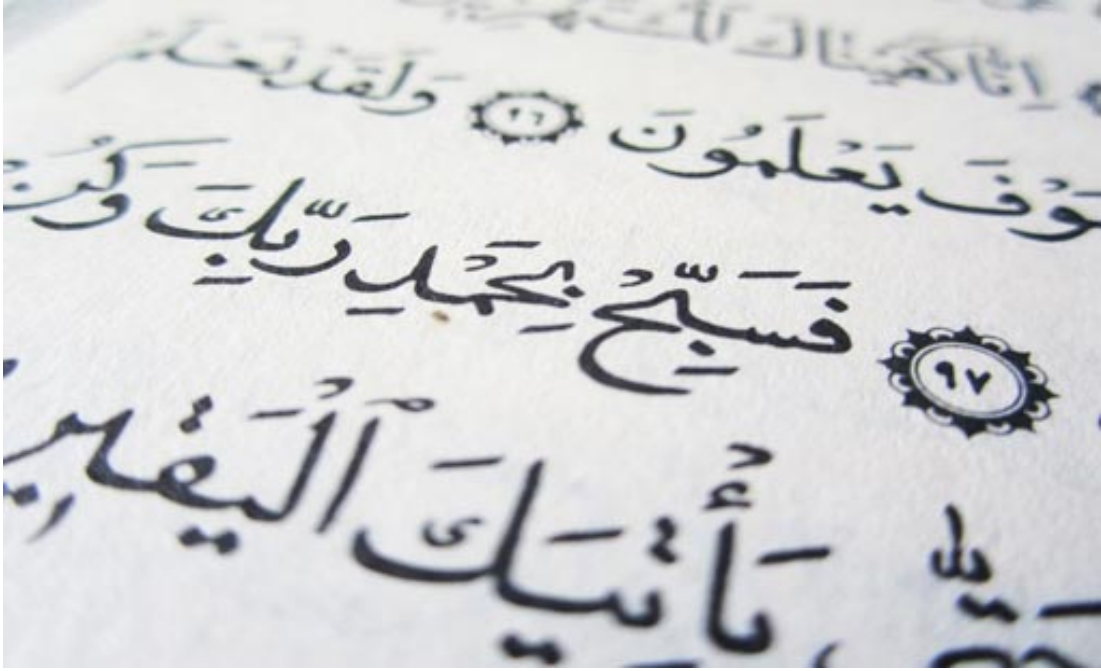 اِنَّا كَفَيْنَاكَ
وْفَ يَعْلَمُونَ ٩٦ وَلَقَدْ نَعْلَمُ
٩٧ فَسَبِّحْ بِحَمْدِ رَبِّكَ وَكُن
يَأْتِيَكَ ٱلْيَقِين